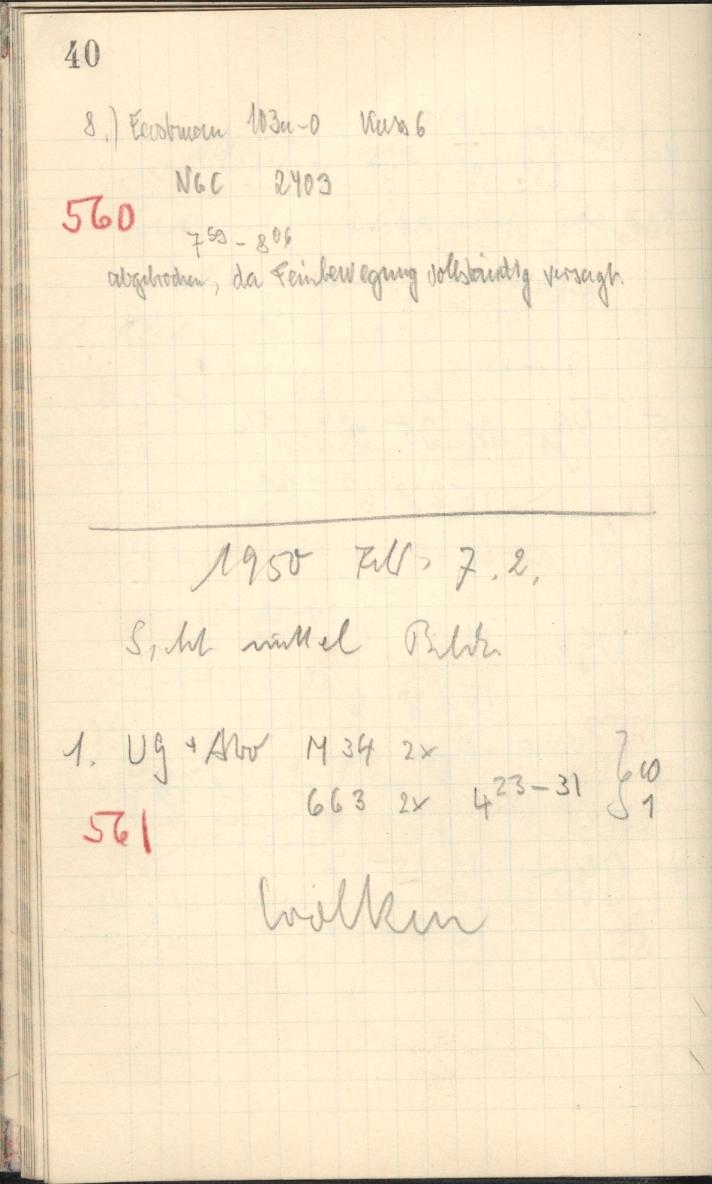 40
8.) Eastman 103a-0 Kass 6
NGC 2403
560
7⁵⁹ - 8⁰⁶
abgebrochen, da Feinbewegung vollständig versagt.
1950 Febr 7.2.
Sicht mittel Bilder
1. UG + Abo M 34 2x
663 2x 4²³⁻³¹
561
Wolken